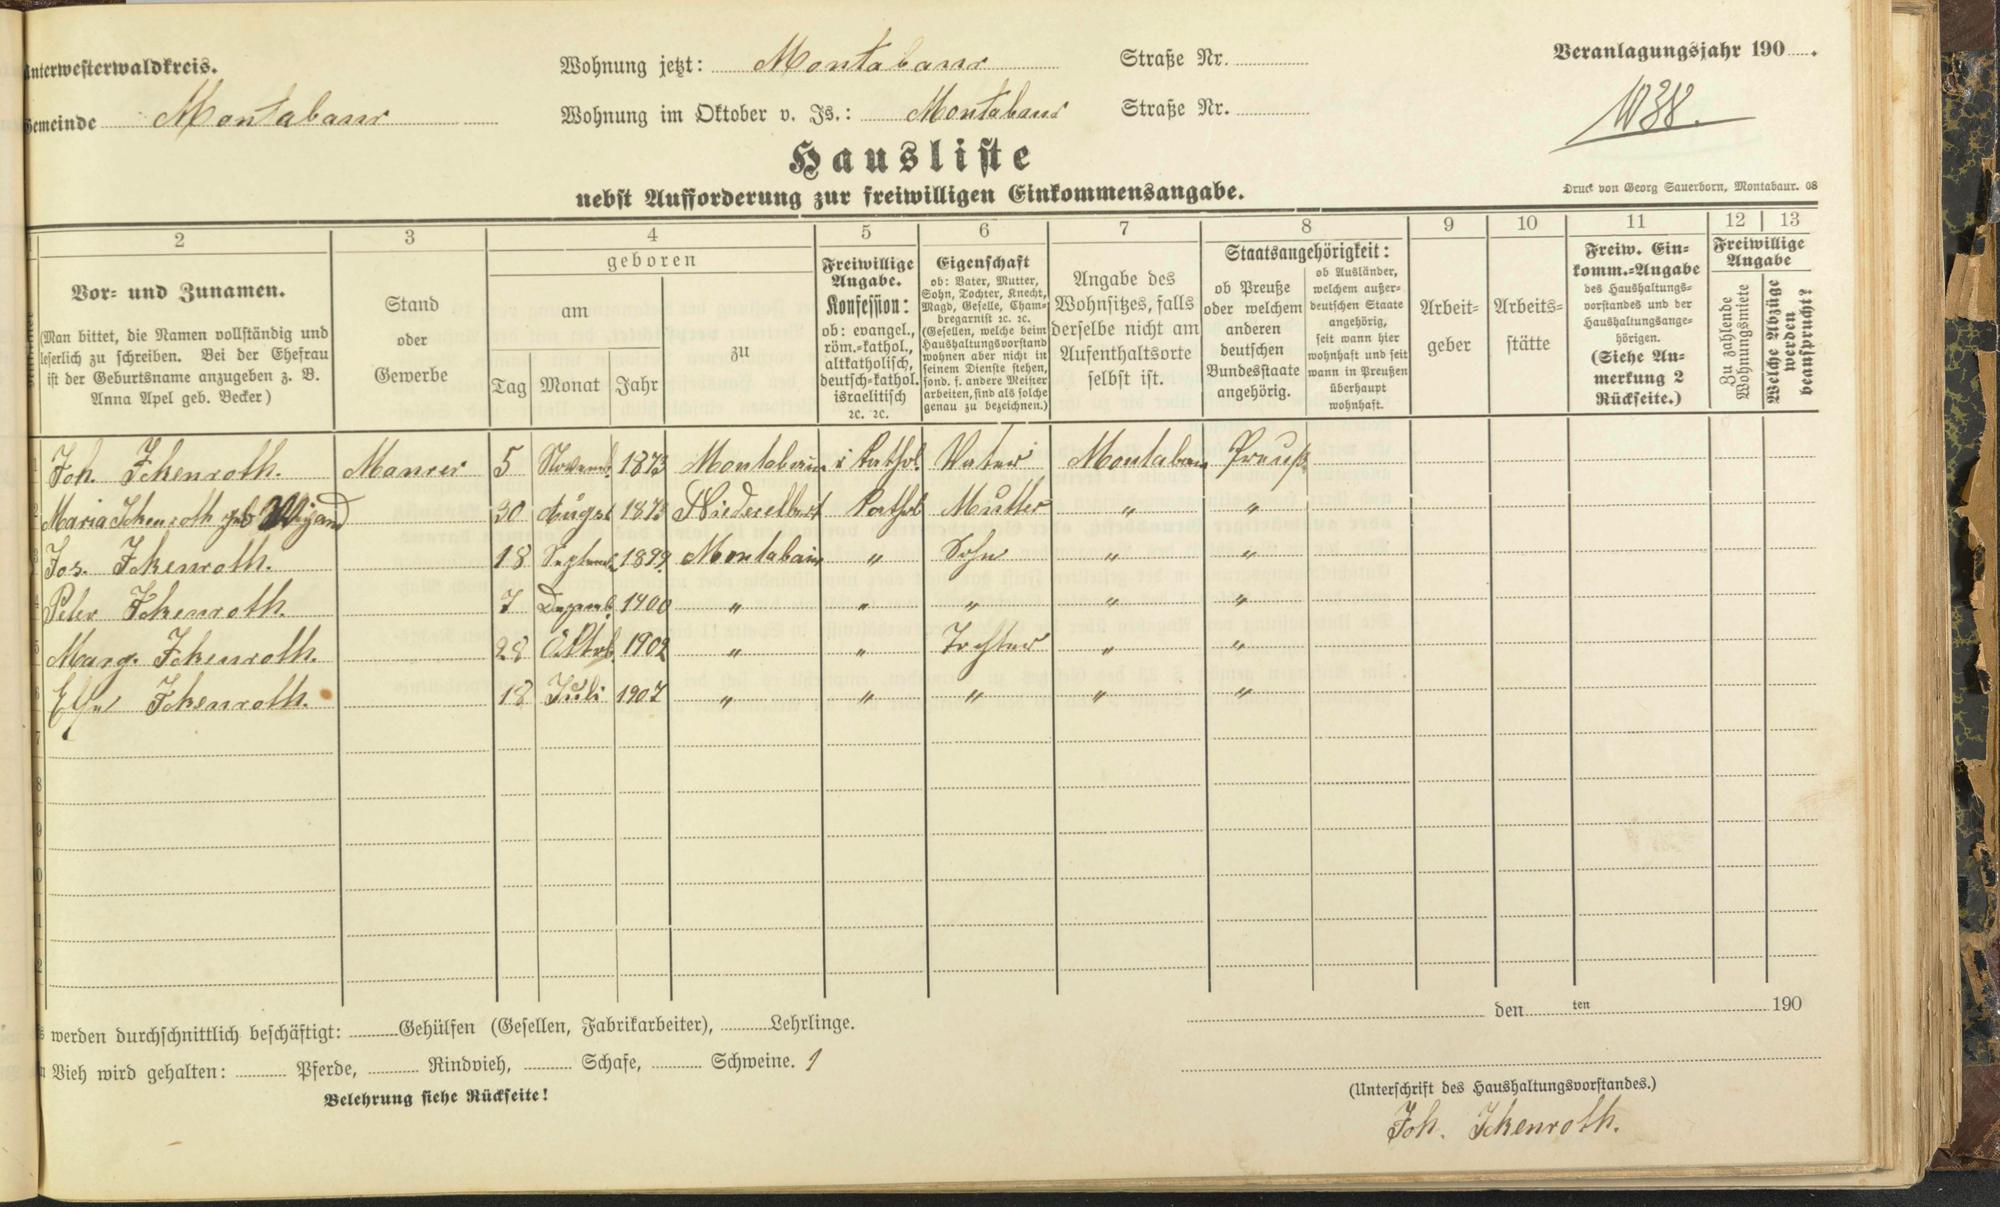 Unterwesterwaldkreis.
Gemeinde Montabaur
Wohnung jetzt: Montabaur Straße Nr.
Wohnung im Oktober v. Js.: Montabaur Straße Nr.
Veranlagungsjahr 190 .
Hausliste
nebst Aufforderung zur freiwilligen Einkommensangabe.
Druck von Georg Sauerborn, Montabaur. 08
2 3 4 5 6 7 8 9 10 11 12 13
Vor- und Zunamen.
(Man bittet, die Namen vollständig und
leserlich zu schreiben. Bei der Ehefrau
ist der Geburtsname anzugeben z. B.
Anna Apel geb. Becker)
Stand
oder
Gewerbe
geboren
am
Tag Monat Jahr
zu
Freiwillige
Angabe.
Konfession:
ob: evangel.,
röm.-kathol.,
altkatholisch,
deutsch-kathol.
israelitisch
ꝛc. ꝛc.
Eigenschaft
ob: Vater, Mutter,
Sohn, Tochter, Knecht,
Magd, Geselle, Cham-
bregarnist ꝛc. ꝛc.
(Gesellen, welche beim
Haushaltungsvorstand
wohnen aber nicht in
seinem Dienste stehen,
sond. f. andere Meister
arbeiten, sind als solche
genau zu bezeichnen.)
Angabe des
Wohnsitzes, falls
derselbe nicht am
Aufenthaltsorte
selbst ist.
Staatsangehörigkeit:
ob Preuße
oder welchem
anderen
deutschen
Bundesstaate
angehörig.
ob Ausländer,
welchem außer-
deutschen Staate
angehörig,
seit wann hier
wohnhaft und seit
wann in Preußen
überhaupt
wohnhaft.
Arbeit-
geber
Arbeits-
stätte
Freiw. Ein-
komm.-Angabe
des Haushaltungs-
vorstandes und der
Haushaltungsange-
hörigen.
(Siehe An-
merkung 2
Rückseite.)
Freiwillige
Angabe
Zu zahlende
Wohnungsmiete
Welche Abzüge
werden
beansprucht?
1 Joh. Ickenroth. Maurer 5 Novemb. 1873 Montabaur r Kathol Vater Montabaur Preuß.
2 Maria Ickenroth geb Wigand 30 August 1873 Niederelbert Kathol Mutter " "
3 Jos. Ickenroth. 18 Septemb. 1899 Montabaur " Sohn " "
4 Peter Ickenroth. 7 Dezemb. 1900 " " " " "
5 Marg. Ickenroth. 28 Oktob. 1902 " " Tochter " "
6 Ickenroth. 18 Juli 1907 " " " " "
7
8
9
10
11
12
werden durchschnittlich beschäftigt: Gehülfen (Gesellen, Fabrikarbeiter), Lehrlinge.
Vieh wird gehalten: Pferde, Rindvieh, Schafe, Schweine. 1
Belehrung siehe Rückseite!
den ten 190
(Unterschrift des Haushaltungsvorstandes.)
Joh. Ickenroth.